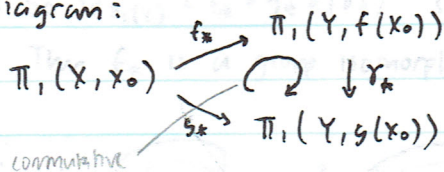 iagram:
f* π₁(Y, f(x₀))
π₁(X, x₀) γ*
g* π₁(Y, g(x₀))
commutative